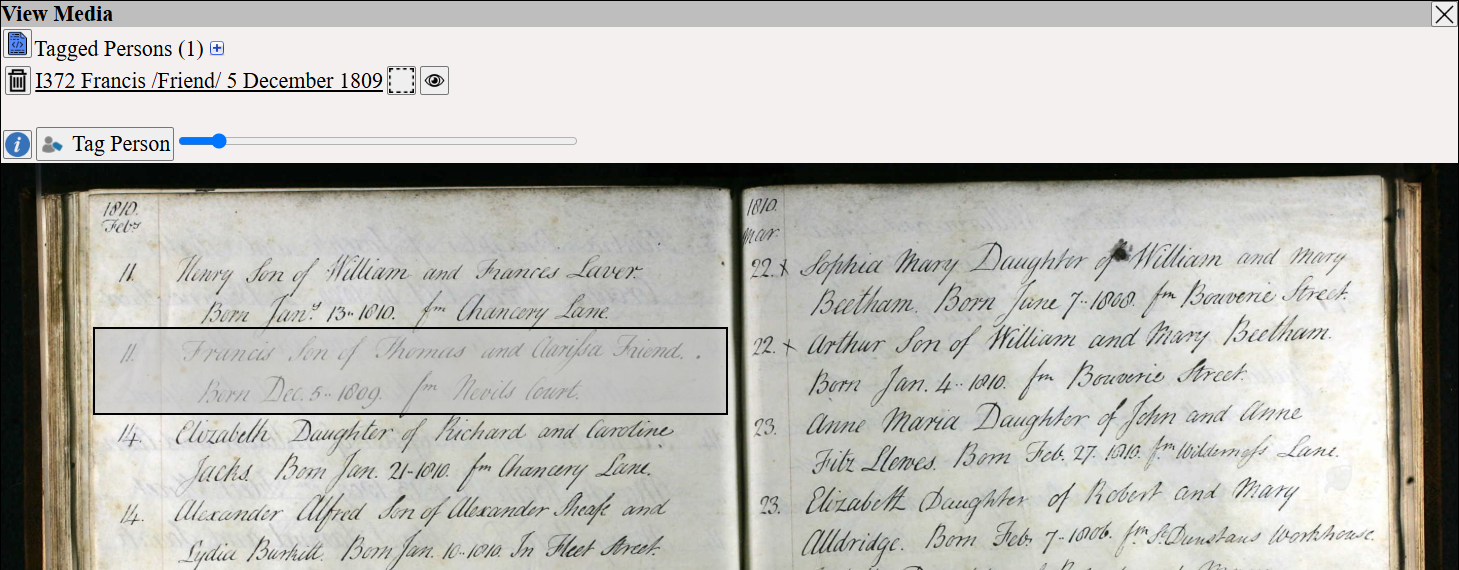 View Media
Tagged Persons (1)
I372 Francis /Friend/ 5 December 1809
Tag Person
1810.
Feby
11. Henry Son of William and Frances Laver.
Born Jany 13-1810. fm Chancery Lane.
11. Francis Son of Thomas and Clarissa Friend.
Born Dec. 5-1809. fm Nevils Court.
14. Elizabeth Daughter of Richard and Caroline
Jacks. Born Jan. 21-1810. fm Chancery Lane.
14. Alexander Alfred Son of Alexander Sheafe and
Lydia Burkitt. Born Jan. 10-1810. In Fleet Street.
1810.
Mar.
22. x Sophia Mary Daughter of William and Mary
Beetham. Born June 7-1808. fm Bouverie Street.
22. x Arthur Son of William and Mary Beetham.
Born Jan. 4-1810. fm Bouverie Street.
23. Anne Maria Daughter of John and Anne
Fitz Llewes. Born Feb. 27. 1810. fm Wilderness Lane.
23. Elizabeth Daughter of Robert and Mary
Alldridge. Born Feb. 7-1806. fm St Dunstans Workhouse.